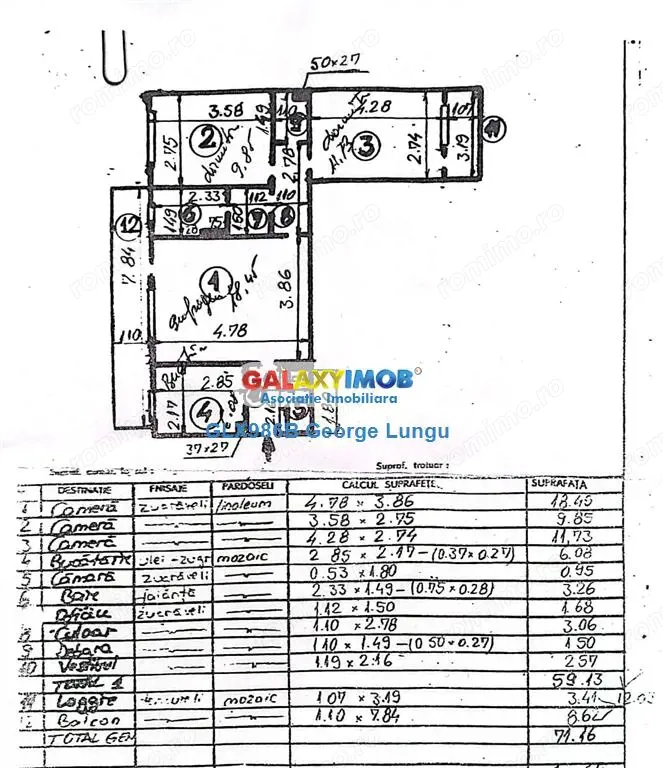 50×27
3.58
1.49
110
4.28
107
2
10
dormitor
3
11
2.75
9.85
2.78
11.73
2.74
3.19
2.33
112
110
12
1.49
6
75
28
7
8
7.84
1
18.45
3.86
4.78
110
2.85
GALAXYIMOB
Asociatie Imobiliara
2.17
4
5
1.8
GLX986B George Lungu
37×27
Supraf. trotuar :
DESTINAȚIE FINISAJE PARDOSELI CALCUL SUPRAFEȚE SUPRAFAȚA
1 Cameră zugrăveli linoleum 4.78 × 3.86 18.45
2 Cameră 3.58 × 2.75 9.85
3 Cameră 4.28 × 2.74 11,73
4 Bucătărie ulei-zugr mozaic 2.85 × 2.17-(0.37×0.27) 6.08
5 Cămară zugrăveli 0.53 × 1.80 0.95
6 Baie faianță 2.33 × 1.49-(0.75×0.28) 3.26
Oficiu zugrăveli 1.12 × 1.50 1.68
8 Culoar 1.10 × 2.78 3.06
9 Debara 1.10 × 1.49-(0.50×0.27) 1.50
10 Vestibul 1.19 × 2.16 2.57
Total 1 59.13
11 Loggie zugrăveli mozaic 1.07 × 3.19 3.41 12.03
12 Balcon 1.10 × 7.84 8.62
TOTAL GEN 71.16
romimo.ro